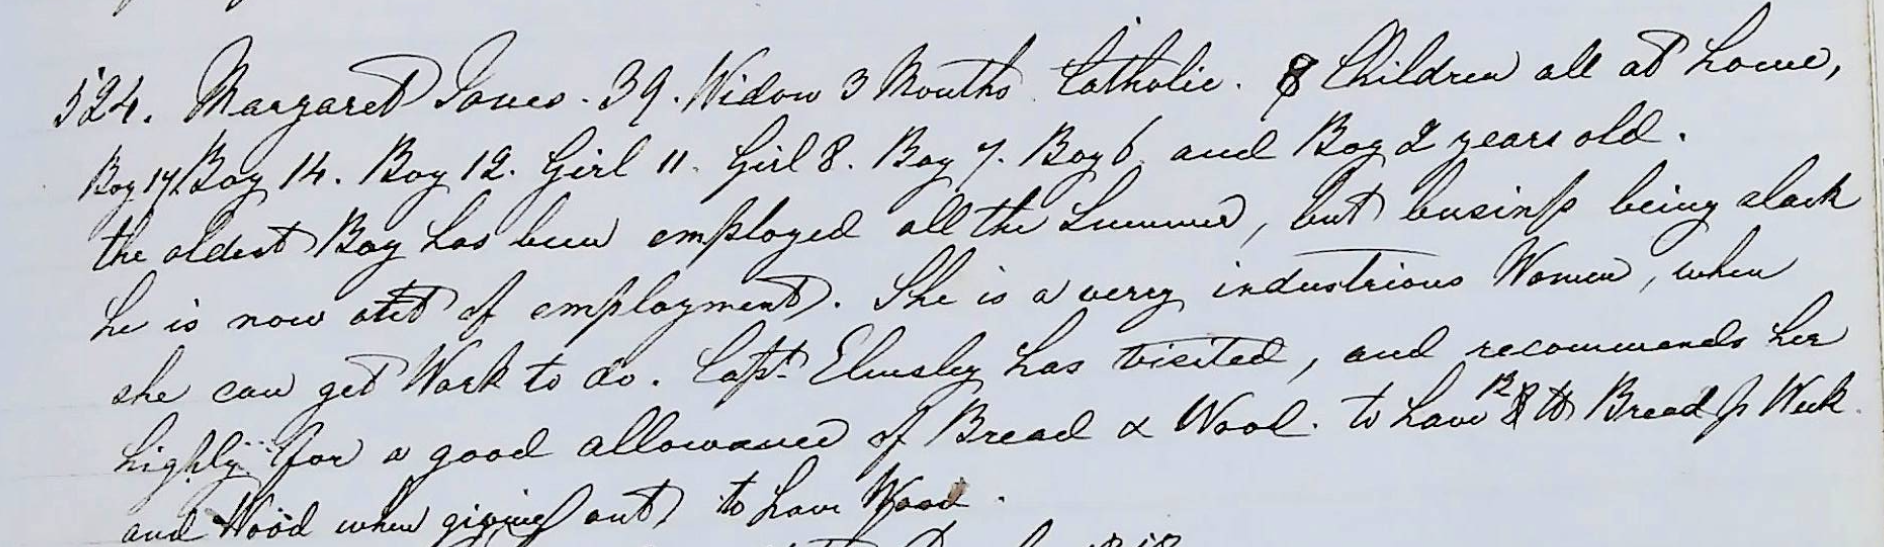 524. Margaret Jones. 39. Widow 3 Months Catholic. 8 Children all at home,
Boy 17 Boy 14. Boy 12. Girl 11. Girl 8. Boy 7. Boy 6 and Boy 2 years old.
the oldest Boy has been employed all the Summer, but business being slack
he is now out of employment. She is a very industrious Women, when
she can get Work to do. Capt. Elmsley has visited, and recommends her
highly for a good allowance of Bread & Wood. to have 12 lb Bread p Week
and Wood when giving out to have Wood.